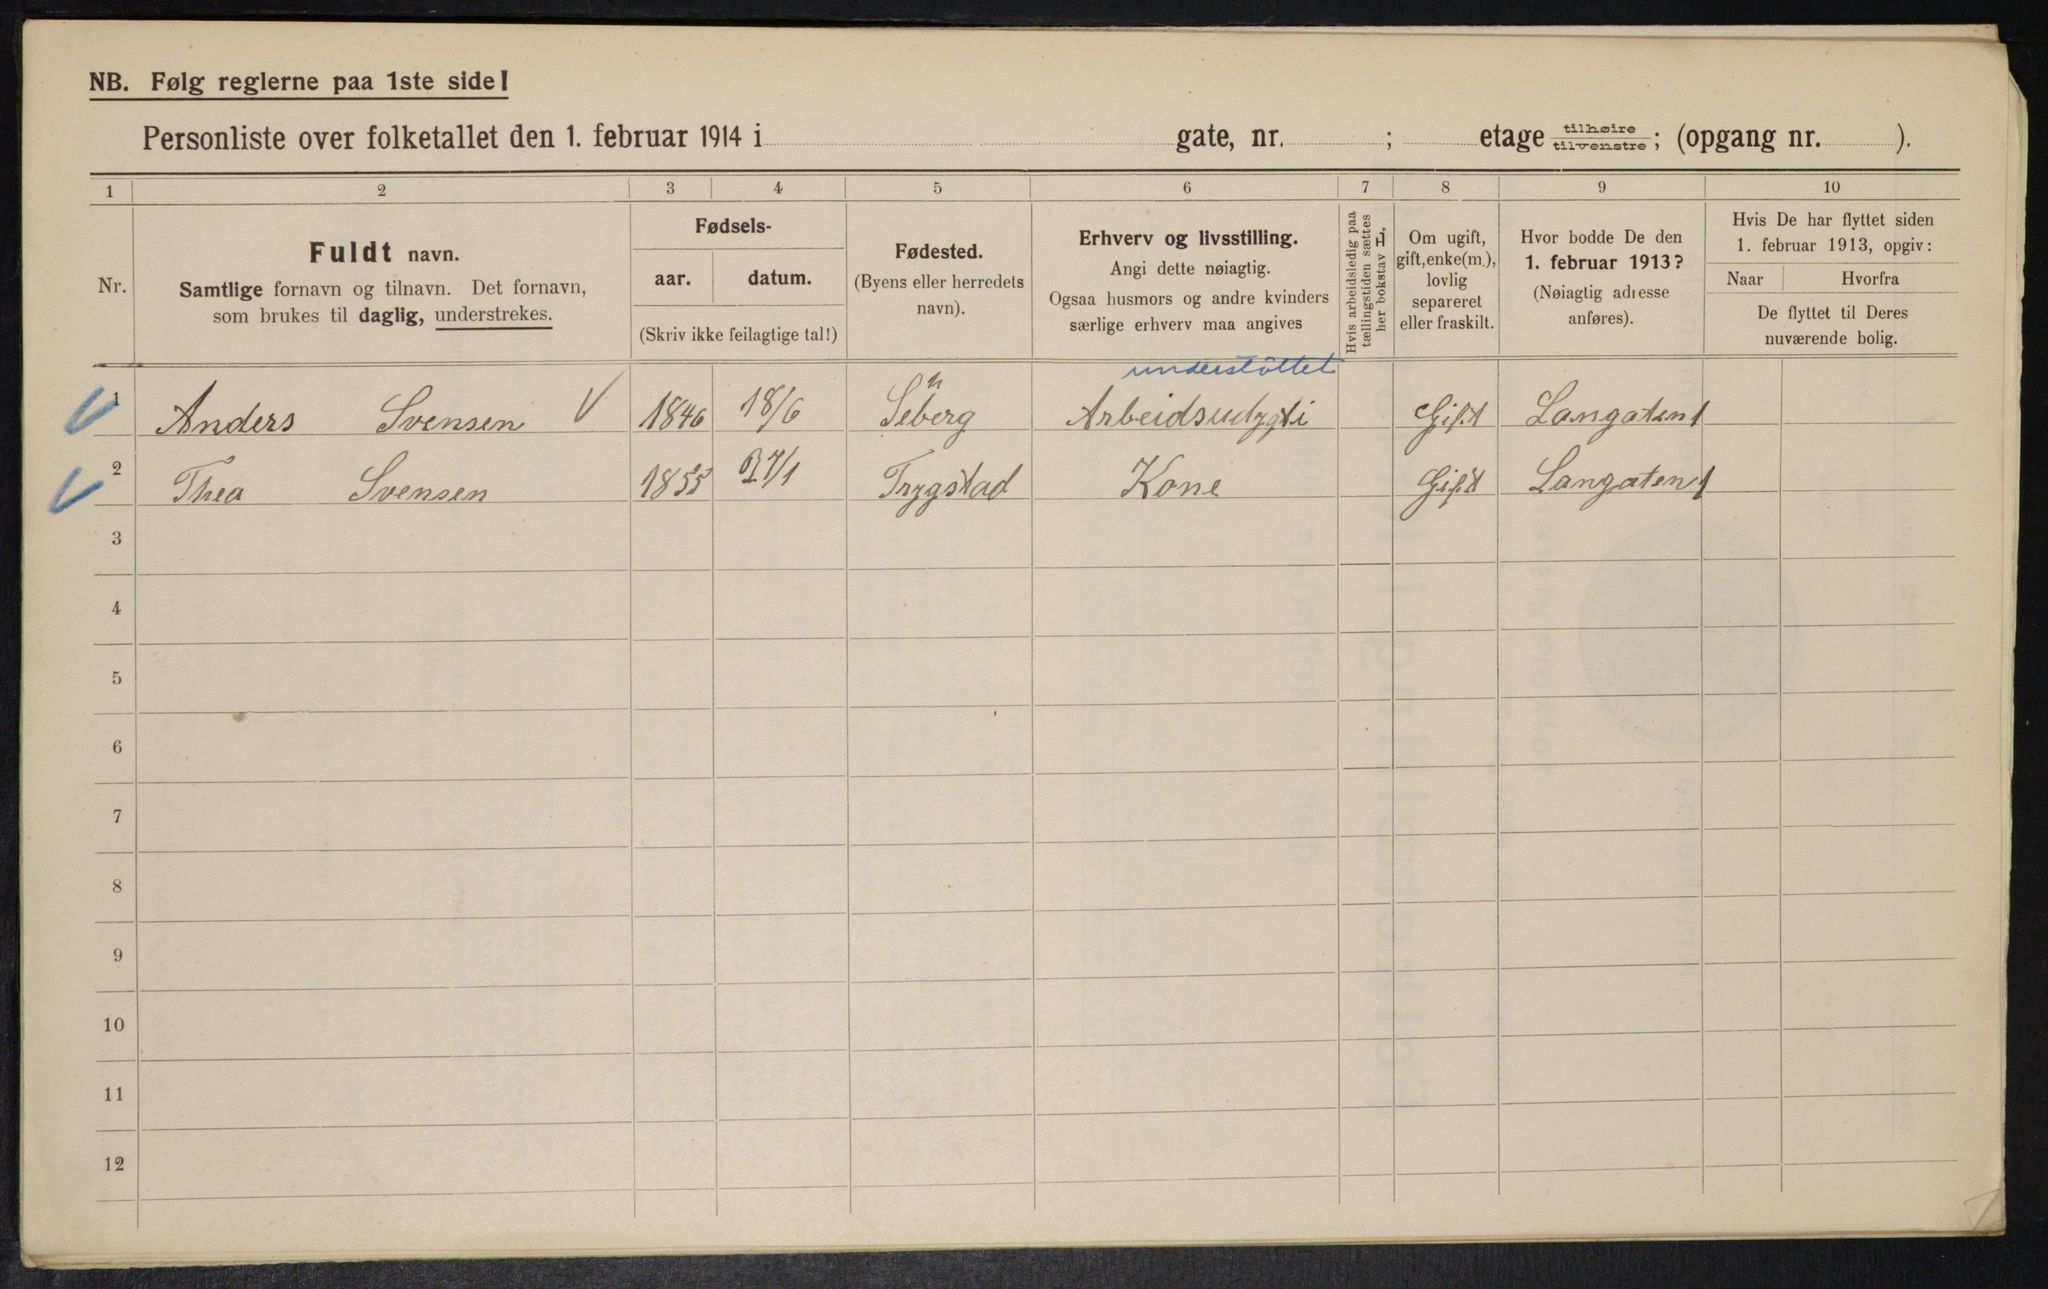 NB. Følg reglerne paa 1ste side!
Personliste over folketallet den 1. februar 1914 i gate, nr. ; etage tilhøire tilvenstre ; (opgang nr. ).
1 2 3 4 5 6 7 8 9 10
Nr.
Fuldt navn.
Samtlige fornavn og tilnavn. Det fornavn,
som brukes til daglig, understrekes.
Fødsels-
aar. datum.
(Skriv ikke feilagtige tal!)
Fødested.
(Byens eller herredets
navn).
Erhverv og livsstilling.
Angi dette nøiagtig.
Ogsaa husmors og andre kvinders
særlige erhverv maa angives
Hvis arbeidsledig paa
tællingstiden sættes
her bokstav L.
Om ugift,
gift, enke(m.),
lovlig
separeret
eller fraskilt.
Hvor bodde De den
1. februar 1913?
(Nøiagtig adresse
anføres).
Hvis De har flyttet siden
1. februar 1913, opgiv:
Naar Hvorfra
De flyttet til Deres
nuværende bolig.
understöttet
1 Anders Svensen 1846 18/6 Arbeidsudygti Gift Langaten 1
2 Thea Svensen 1855 27/1 Trygstad Kone Gift Langaten 1
3
4
5
6
7
8
9
10
11
12